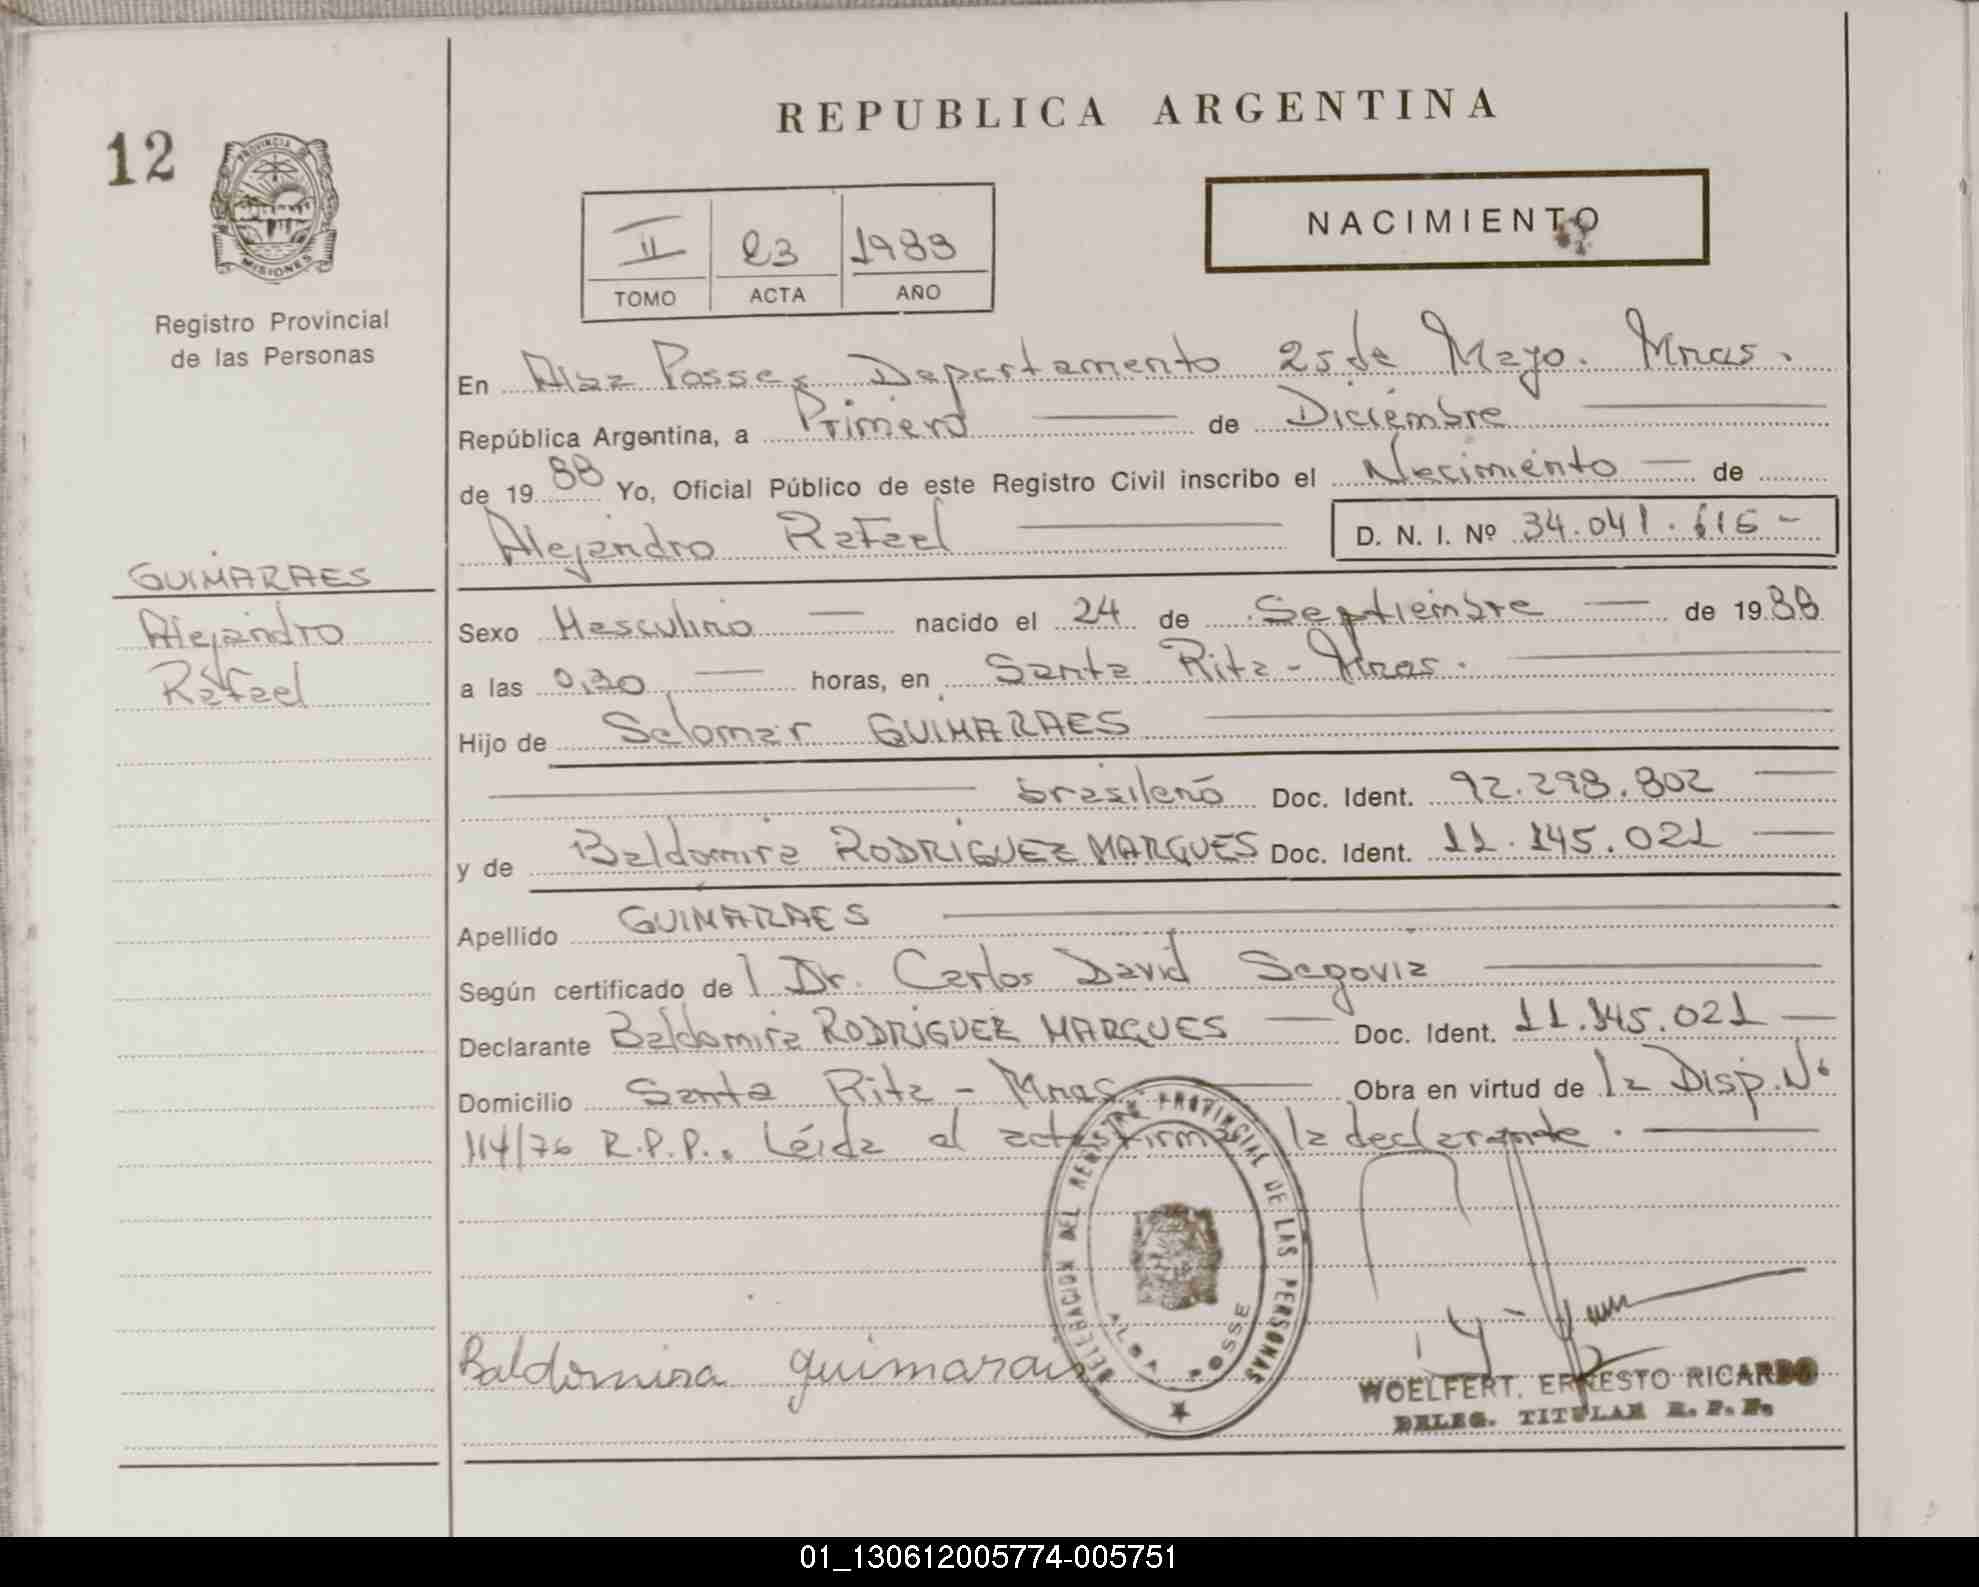 REPUBLICA ARGENTINA
12
PROVINCIA DE
MISIONES
Registro Provincial
de las Personas
II 23 1988
TOMO ACTA AÑO
NACIMIENTO
En Alba Posse, Departamento 25 de Mayo. Mnes.
República Argentina, a Primero de Diciembre
de 19 88 Yo, Oficial Público de este Registro Civil inscribo el Nacimiento de
Alejandro Rafael D. N. I. Nº 34.041.616-
GUIMARAES
Alejandro
Rafael
Sexo Masculino nacido el 24 de Septiembre de 19 88
a las 0,30 horas, en Santa Rita - Mnes.
Hijo de Salomar GUIMARAES
brasileño Doc. Ident. 92.298.802
y de Baldomira RODRIGUEZ MARQUES Doc. Ident. 11.145.021
Apellido GUIMARAES
Según certificado del Dr. Carlos David Segovia
Declarante Baldomira RODRIGUEZ MARQUES Doc. Ident. 11.145.021
Domicilio Santa Rita - Mnes Obra en virtud de la Disp. Nº
114/76 R.P.P.. Leída el acta firma la declarante.
DELEGACION DEL REGISTRO PROVINCIAL DE LAS PERSONAS
ALBA POSSE
Baldomira guimaraes
WOELFERT, ERNESTO RICARDO
DELEG. TITULAR R. P. P.
01_130612005774-005751